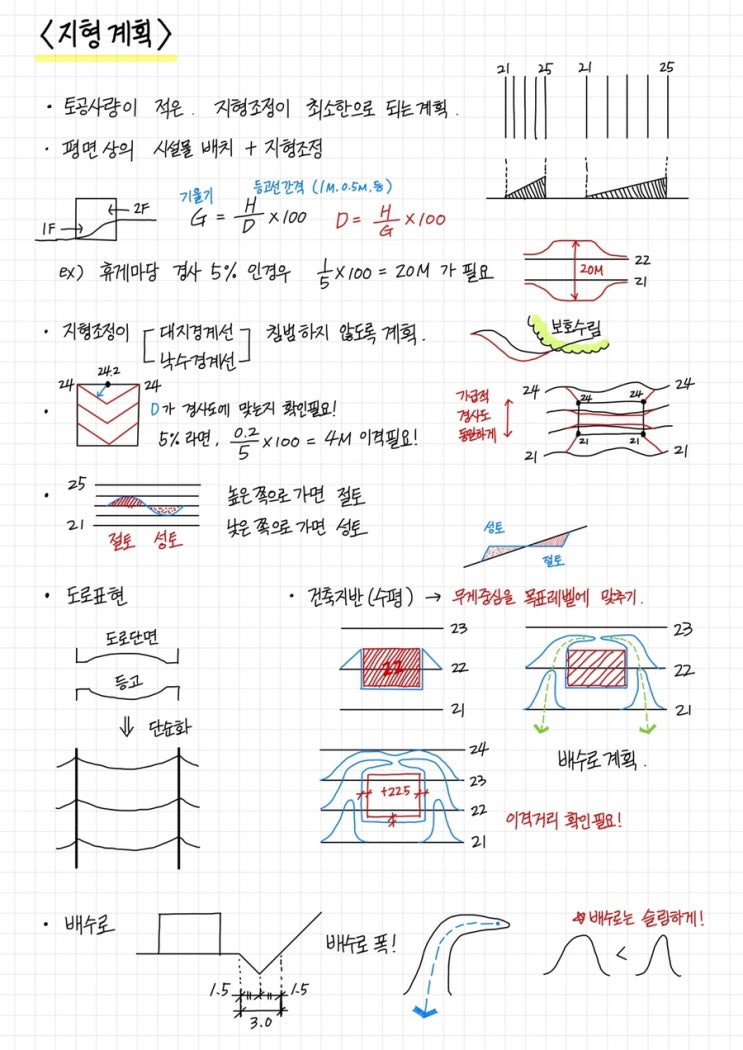 〈지형 계획〉
21 25 21 25
• 토공사량이 적은. 지형조정이 최소한으로 되는 계획.
• 평면 상의 시설물 배치 + 지형조정
기울기 등고선 간격 (1M, 0.5M, 등)
1F 2F
G = H/D × 100 D = H/G × 100
ex) 휴게마당 경사 5% 인경우 1/5 × 100 = 20M 가 필요
22
20M
21
• 지형조정이 [대지경계선 낙수경계선] 침범하지 않도록 계획.
보호수림
24.2
24 24
• D가 경사도에 맞는지 확인필요!
5% 라면, 0.2/5 × 100 = 4M 이격필요!
가급적
경사도
동일하게
24 24
24 24
21 21
21 21
• 25
21
절토 성토
높은 쪽으로 가면 절토
낮은 쪽으로 가면 성토
성토
절토
• 도로표현
도로단면
등고
⇓ 단순화
• 건축지반 (수평) → 무게중심을 목표레벨에 맞추기.
23
22 22
21
23
22
21
배수로 계획.
24
23
+22.5
22
21
이격거리 확인필요!
• 배수로
1.5 1.5
3.0
배수로 폭!
☆ 배수로는 슬림하게!
<